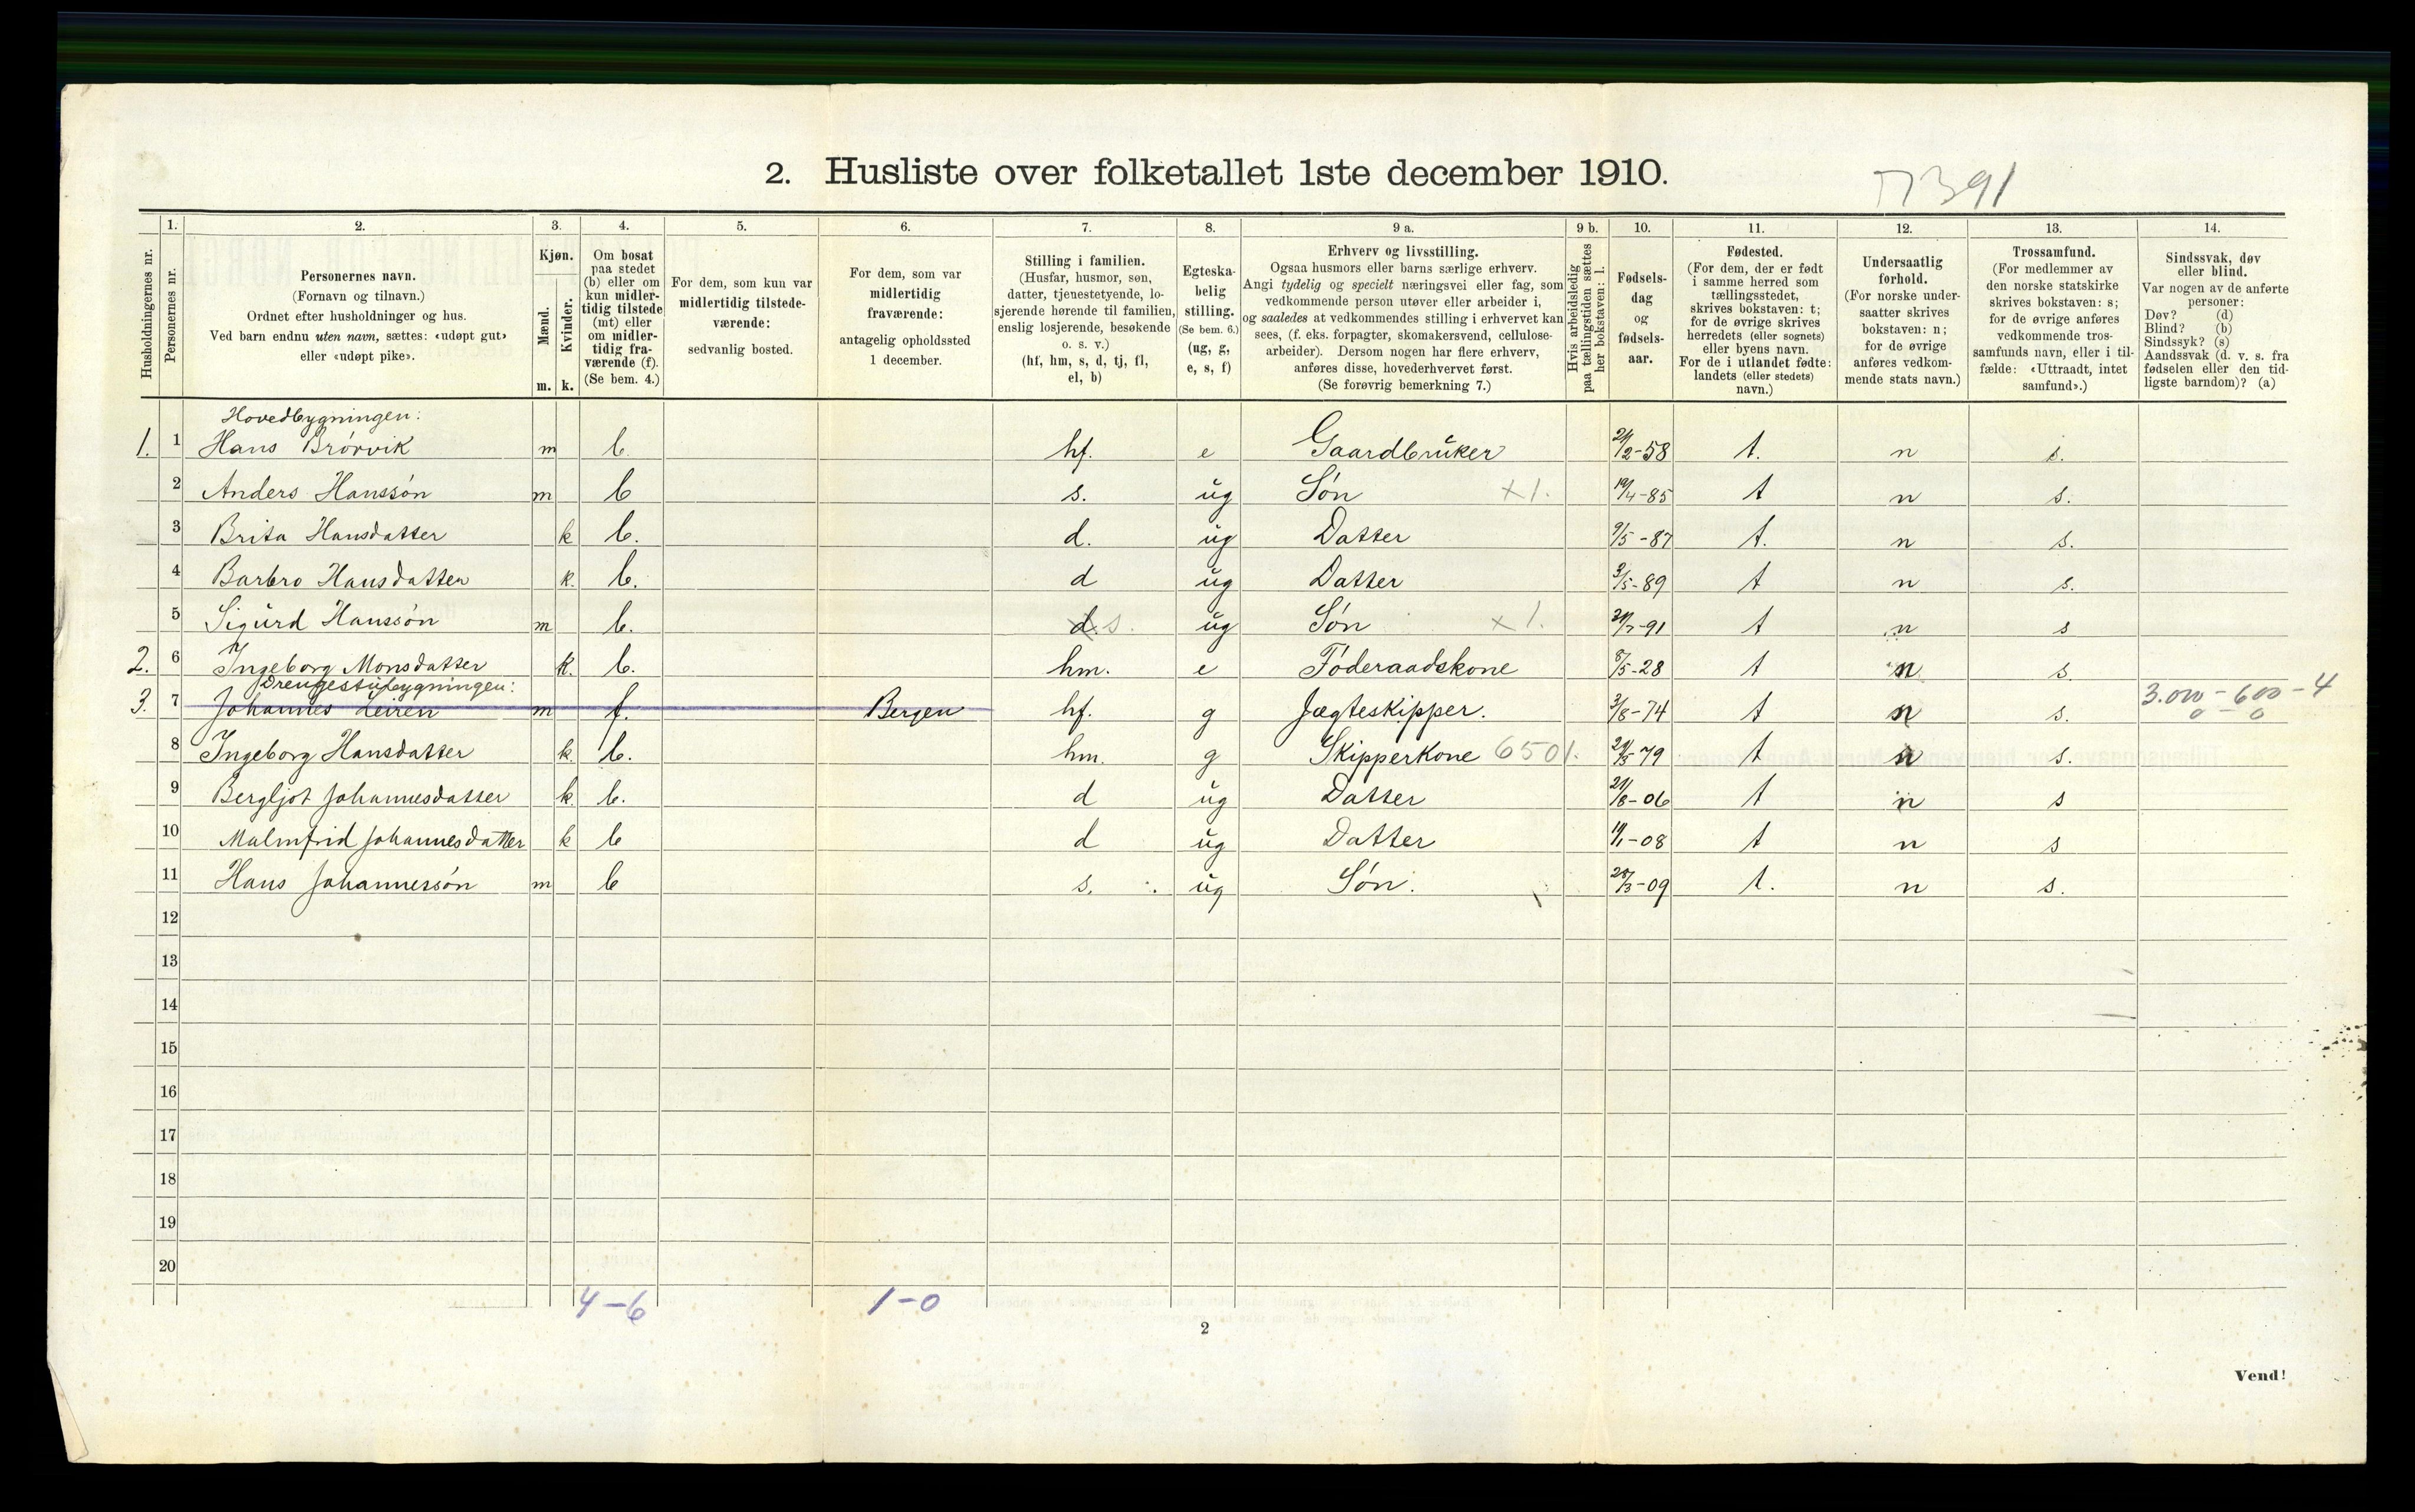 2. Husliste over folketallet 1ste december 1910.
1. 2. 3. 4. 5. 6. 7. 8. 9 a. 9 b. 10. 11. 12. 13. 14.
Husholdningernes nr.
Personernes nr.
Personernes navn.
(Fornavn og tilnavn.)
Ordnet efter husholdninger og hus.
Ved barn endnu uten navn, sættes: «udøpt gut»
eller «udøpt pike».
Kjøn.
Mænd.
Kvinder.
m. k.
Om bosat
paa stedet
(b) eller om
kun midler-
tidig tilstede
(mt) eller
om midler-
tidig fra-
værende (f).
(Se bem. 4.)
For dem, som kun var
midlertidig tilstede-
værende:
sedvanlig bosted.
For dem, som var
midlertidig
fraværende:
antagelig opholdssted
1 december.
Stilling i familien.
(Husfar, husmor, søn,
datter, tjenestetyende, lo-
sjerende hørende til familien,
enslig losjerende, besøkende
o. s. v.)
(hf, hm, s, d, tj, fl,
el, b)
Egteska-
belig
stilling.
(Se bem. 6.)
(ug, g,
e, s, f)
Erhverv og livsstilling.
Ogsaa husmors eller barns særlige erhverv.
Angi tydelig og specielt næringsvei eller fag, som
vedkommende person utøver eller arbeider i,
og saaledes at vedkommendes stilling i erhvervet kan
sees, (f. eks. forpagter, skomakersvend, cellulose-
arbeider). Dersom nogen har flere erhverv,
anføres disse, hovederhvervet først.
(Se forøvrig bemerkning 7.)
Hvis arbeidsledig
paa tællingstiden sættes
her bokstaven: l.
Fødsels-
dag
og
fødsels-
aar.
Fødested.
(For dem, der er født
i samme herred som
tællingsstedet,
skrives bokstaven: t;
for de øvrige skrives
herredets (eller sognets)
eller byens navn.
For de i utlandet fødte:
landets (eller stedets)
navn.)
Undersaatlig
forhold.
(For norske under-
saatter skrives
bokstaven: n;
for de øvrige
anføres vedkom-
mende stats navn.)
Trossamfund.
(For medlemmer av
den norske statskirke
skrives bokstaven: s;
for de øvrige anføres
vedkommende tros-
samfunds navn, eller i til-
fælde: «Uttraadt, intet
samfund».)
Sindssvak, døv
eller blind.
Var nogen av de anførte
personer:
Døv? (d)
Blind? (b)
Sindssyk? (s)
Aandssvak (d. v. s. fra
fødselen eller den tid-
ligste barndom)? (a)
Hovedbygningen:
1. 1 Hans Brørvik m b. hf. e Gaardbruker 2-58 t. n s.
2 Anders Hanssøn m b s. ug Søn x1. 19/4-85 t n s.
3 Brita Hansdatter k b. d. ug Datter 9/5-87 t. n s.
4 Barbro Hansdatter k. b. d ug Datter 3/5-89 t n s.
5 Sigurd Hanssøn m b. d. s. ug Søn x1. -91 t n s
2. 6 Ingeborg Monsdatter k. b. hm. e Føderaadskone 8/5-28 t n s.
Drengestubygningen:
3. 7 Johannes Leiren m f. Bergen hf. g Jægteskipper. 3/8-74 t n s. 3.000-600-4
0-0
8 Ingeborg Hansdatter k. b. hm. g Skipperkone 6501. 79 t n s.
9 Bergljot Johannesdatter k. b. d ug Datter 21/8-06 t n s
10 Malmfrid Johannesdatter k b d ug Datter 11/1-08 t n s
11 Hans Johannessøn m b s. ug Søn. 28/3-09 t. n s.
12
13
14
15
16
17
18
19
20
4-6 1-0
2
Vend!